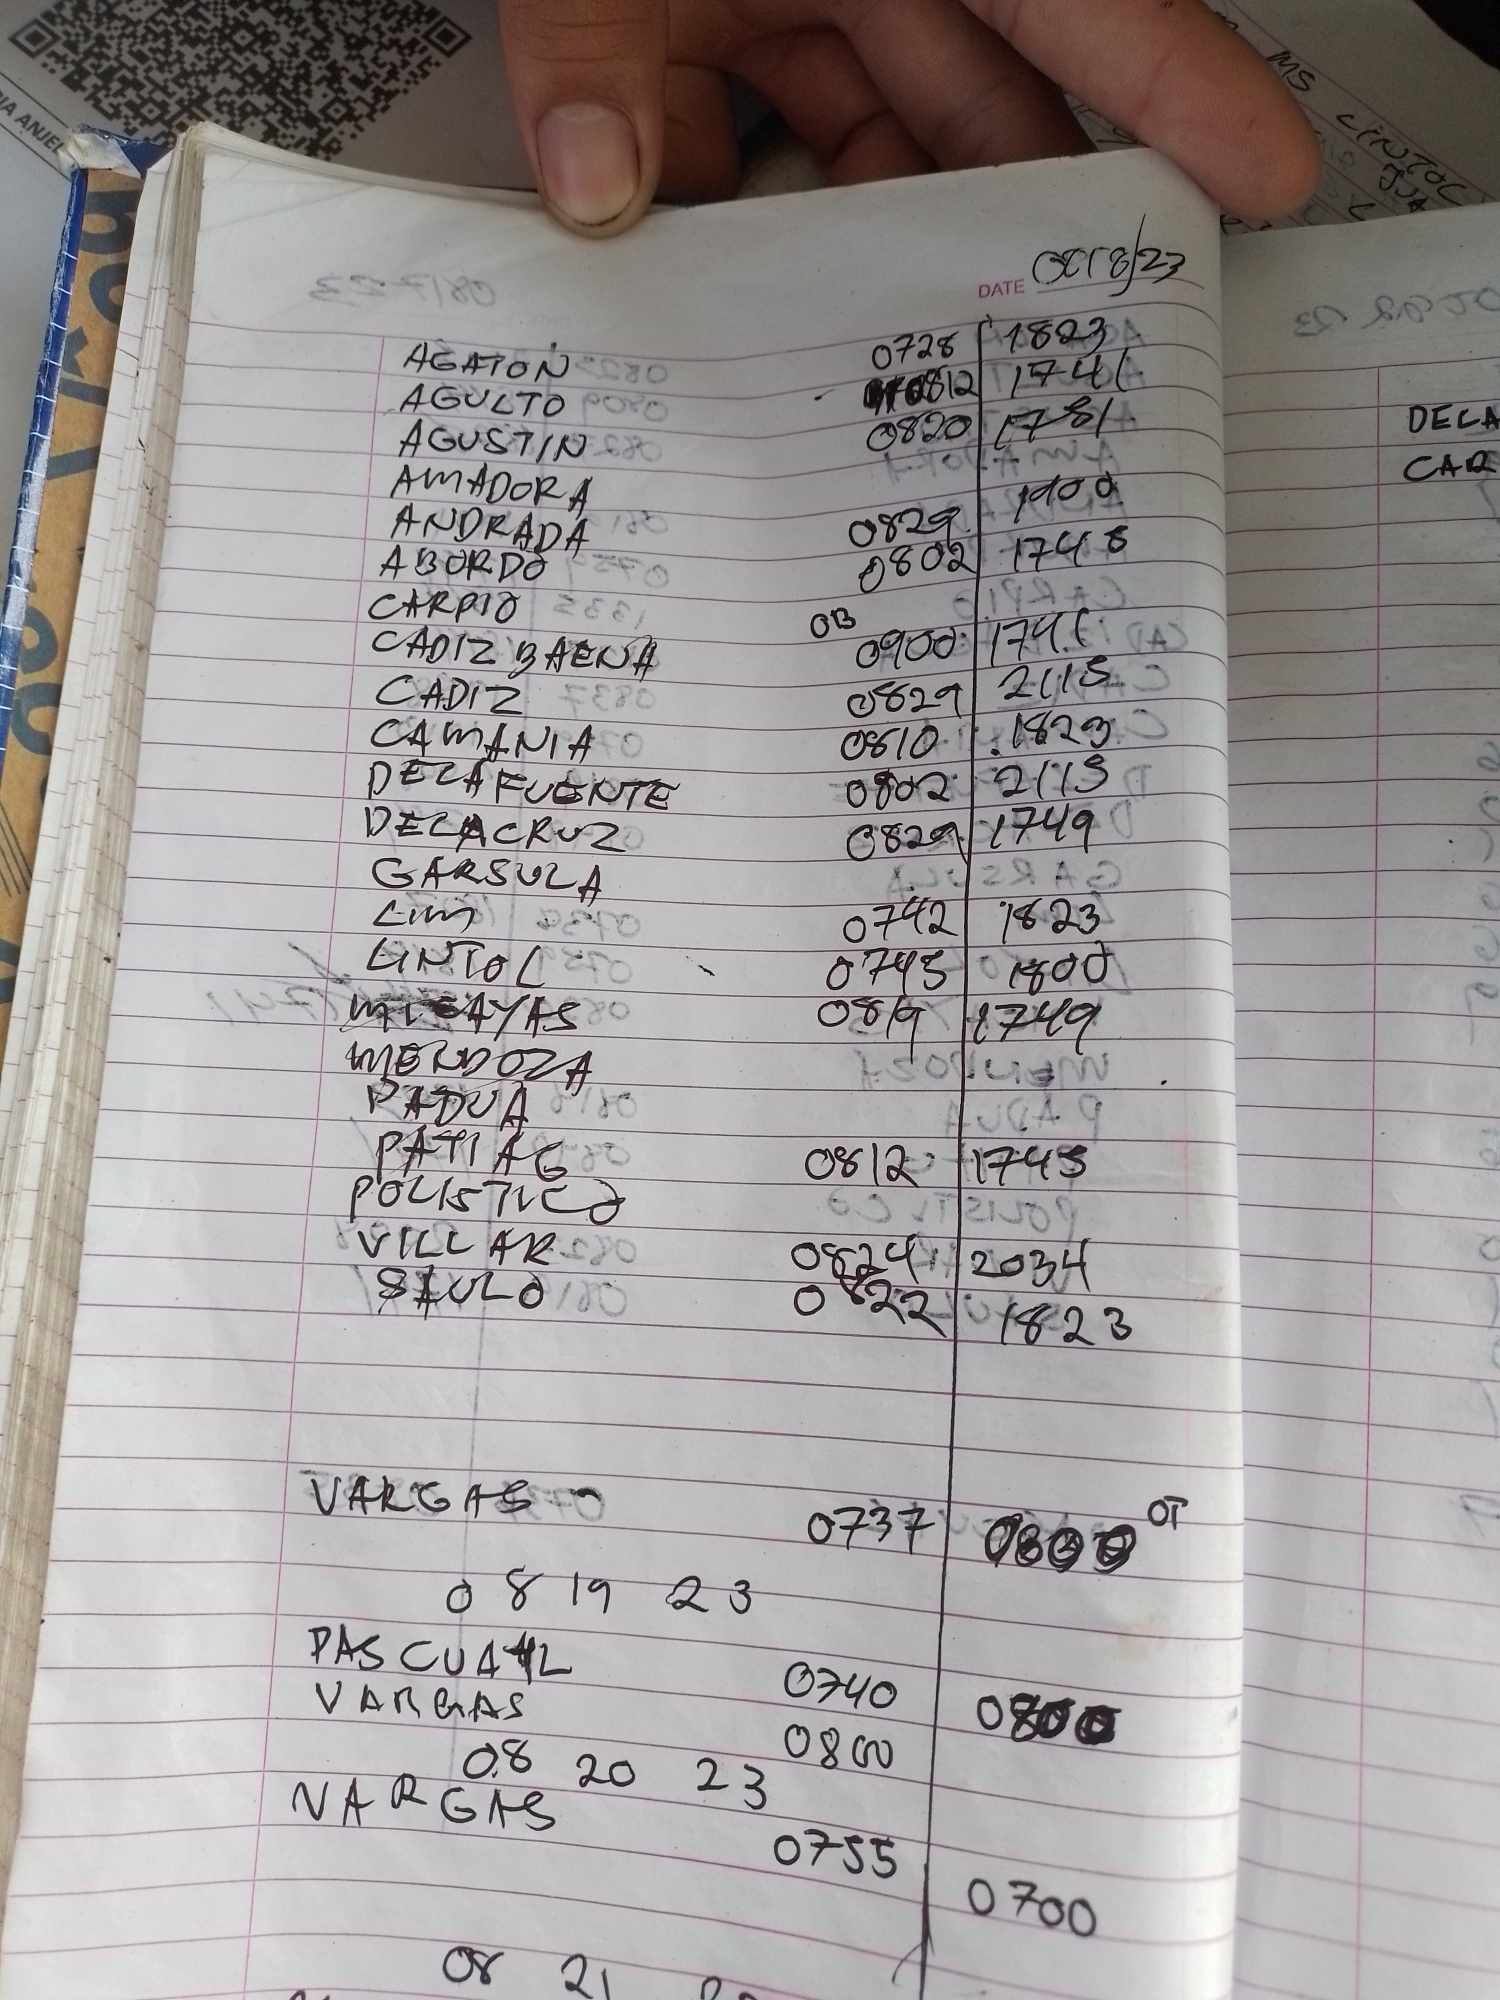 MS LINTOL
DATE 0818/23
AGATON 0728 1823
AGULTO 0812 1741
AGUSTIN 0820 1781
AMADORA
ANDRADA 0829 1900
ABORDO 0802 1748
CARPIO OB
CADIZ BAENA 0900 1741
CADIZ 0829 2115
CAMANIA 0810 1823
DELAFUENTE 0802 2115
DELACRUZ 0829 1749
GARSULA
LIM 0742 1823
LINTOL 0745 1800
MICAYAS 0819 1749
MENDOZA
PADUA
PATIAG 0812 1745
POLISTICO
VILLAR 0824 2034
SAULO 0822 1823
VARGAS 0737 0800 OT
0819 23
PASCUAL 0740 0800
VARGAS 0800
08 20 23
VARGAS 0755 0700
08 21
DELA
CAR